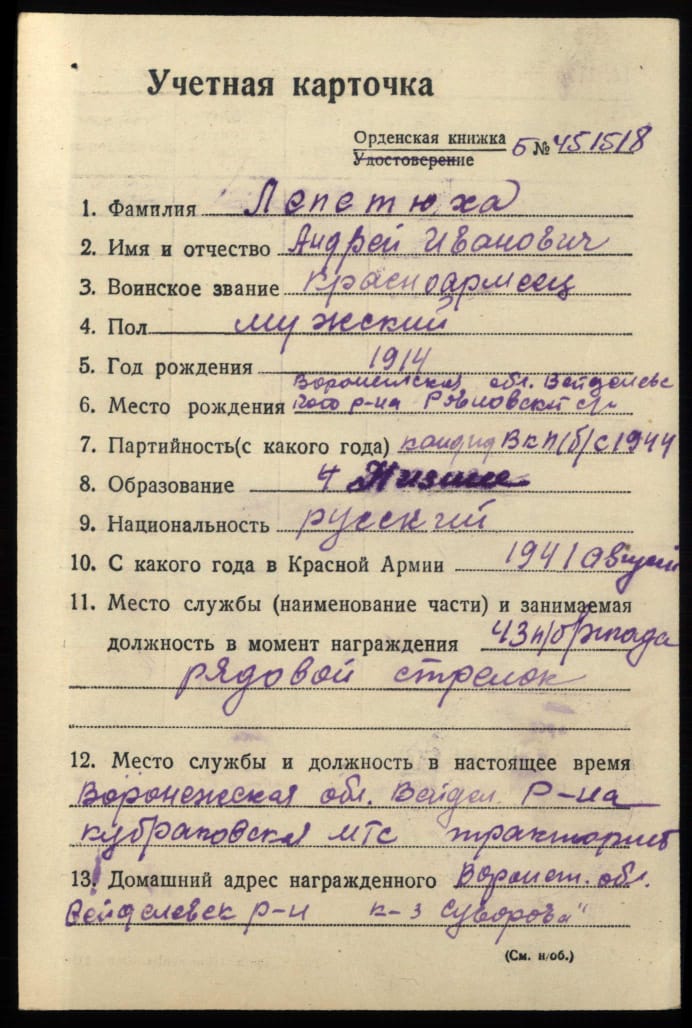 Учетная карточка
Орденская книжка
Удостоверение Б № 451518
1. Фамилия Лепетюха
2. Имя и отчество Андрей Иванович
3. Воинское звание Красноармеец
4. Пол мужский
5. Год рождения 1914
Воронежская обл. Вейделевс
6. Место рождения кого р-на
7. Партийность (с какого года) кандид ВКП/б/ с 1944
8. Образование 4 Низшее
9. Национальность русский
10. С какого года в Красной Армии 1941 Август
11. Место службы (наименование части) и занимаемая
должность в момент награждения 43 бригада
рядовой стрелок
12. Место службы и должность в настоящее время
Воронежская обл. Вейдел. р-на
МТС тракторист
13. Домашний адрес награжденного Воронеж. обл.
Вейделевск р-н к-з Суворова"
(См. н/об.)